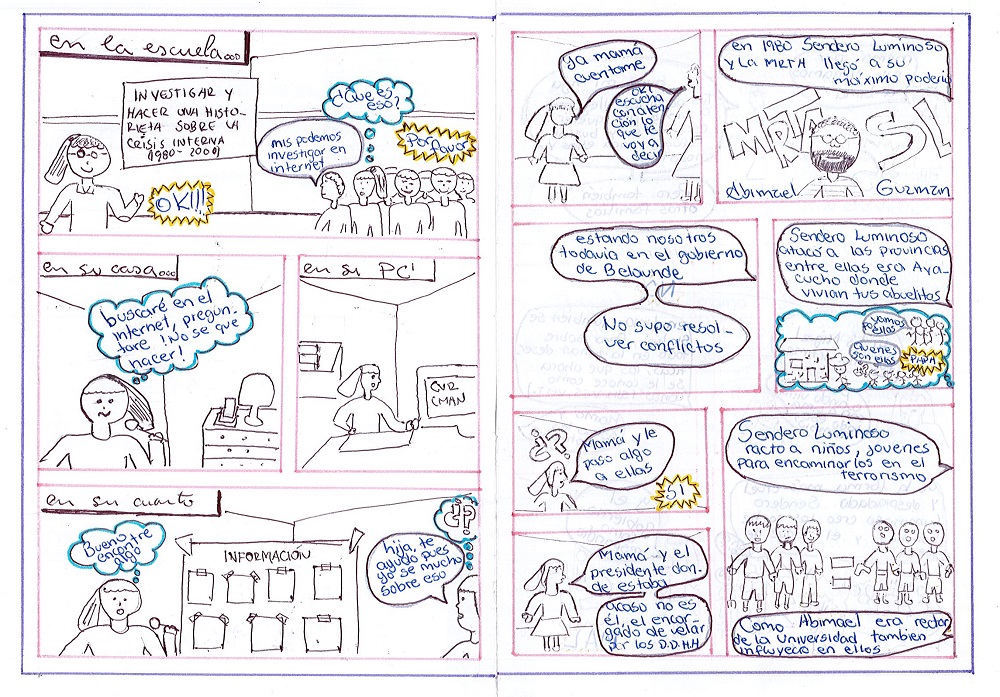 en la escuela...
INVESTIGAR Y
HACER UNA HISTO-
RIETA SOBRE LA
CRISIS INTERNA
(1980-2000)
OK!!!
¿Que es
eso?
mis podemos
investigar en
internet
Por
favor
en su casa...
buscaré en el
internet, pregun-
tare !No se que
hacer!
en su PC!
CVR
CMAN
en su cuarto
Bueno
encontre
algo
INFORMACIÓN
¿?
hija, te
ayudo pues
yo se mucho
sobre eso
ya mamá
cuentame
OK!
escucha
con aten
ción lo
que te
voy a
decir
en 1980 Sendero Luminoso
y La MRTA llegó a su
máximo poderio
MRTA
SL
Abimael Guzmán
estando nosotros
todavia en el gobierno
de Belaunde
No supo resol-
ver conflictos
Sendero Luminoso
atacó a las provincias
entre ellas era Aya-
cucho donde
vivian tus abuelitos
vamos
por ellos
Quienes
son ellos
PAPA
¿?
Mamá y le
paso algo
a ellas
SI
Sendero Luminoso
racto a niños, jovenes
para encaminarlos en el
terrorismo
Mamá y el
presidente don-
de estaba
acaso no es
él, el encar-
gado de velar
por los D.D.H.H
=
Como Abimael era rector
de la universidad tambien
influyero en ellos